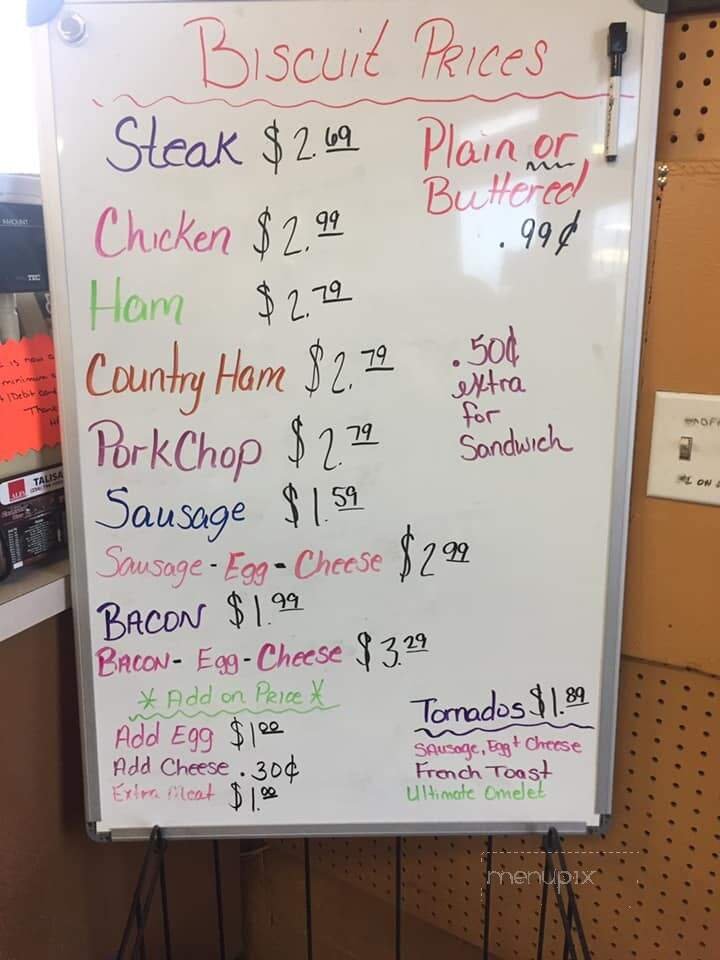 Biscuit Prices
Steak $2.69
Plain or
Buttered
.99¢
Chicken $2.99
Ham $2.79
Country Ham $2.79
.50¢
extra
for
Sandwich
Pork Chop $2.79
Sausage $1.59
Sausage - Egg - Cheese $2.99
Bacon $1.99
Bacon - Egg - Cheese $3.29
* Add on Price *
Add Egg $1.00
Add Cheese .30¢
Extra Meat $1.00
Tornados $1.89
Sausage, Egg + Cheese
French Toast
Ultimate Omelet
menupix